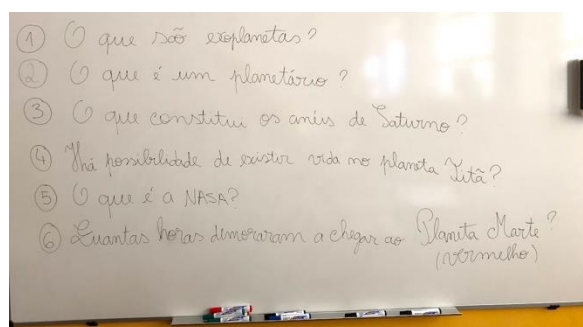 ① O que são exoplanetas?
② O que é um planetário?
③ O que constitui os anéis de Saturno?
④ Há possibilidade de existir vida no planeta Titã?
⑤ O que é a NASA?
⑥ Quantas horas demoraram a chegar ao Planeta Marte?
(vermelho)